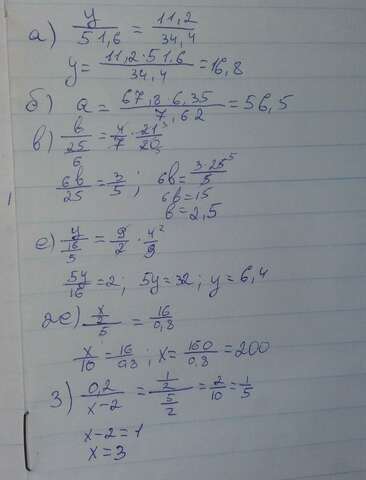 а) y/51,6 = 11,2/34,4
y = 11,2·51,6/34,4 = 16,8
б) a = 67,8·6,35/7,62 = 56,5
в) b/(25/6) = 4/7 · 21³/20₅
6b/25 = 3/5 ; 6b = 3·25⁵/5
6b = 15
b = 2,5
е) y/(16/5) = 9/2 · 4²/9
5y/16 = 2; 5y = 32; y = 6,4
же) (x/2)/5 = 16/0,8
x/10 = 16/0,8 ; x = 160/0,8 = 200
з) 0,2/(x-2) = (1/2)/(5/2) = 2/10 = 1/5
x-2 = 1
x = 3